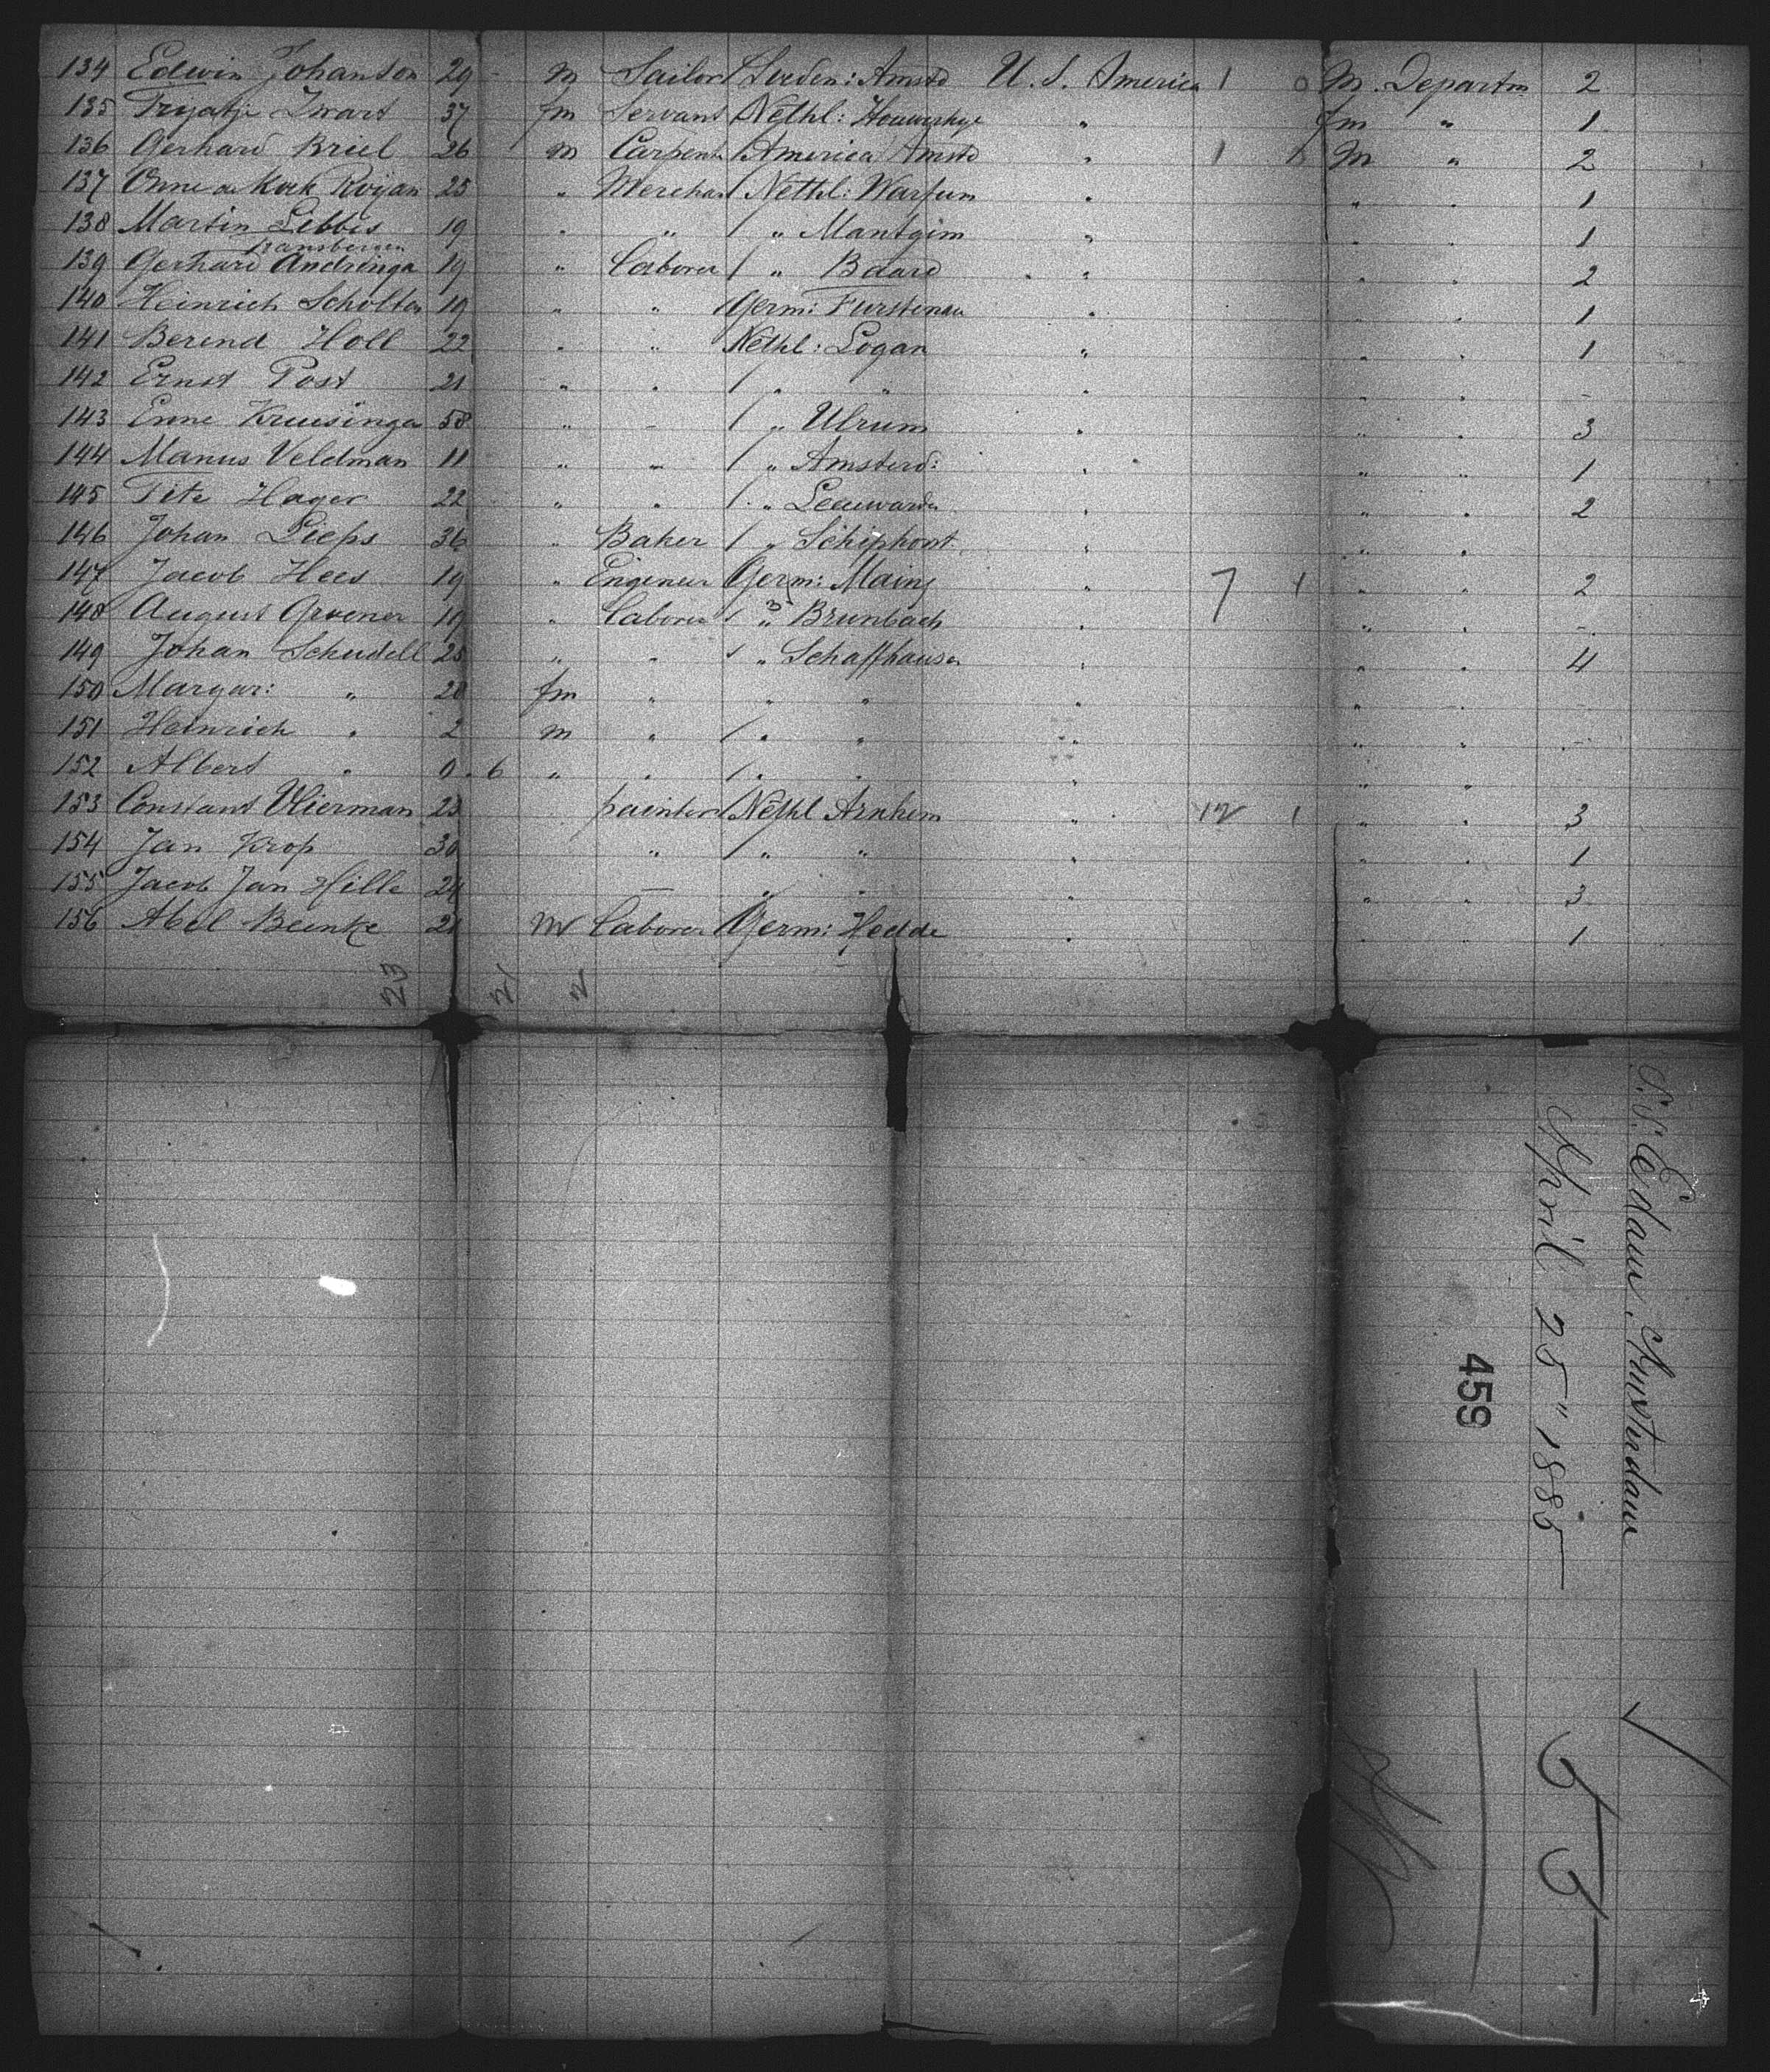 134 Edwin Johanson 29 m Sailor Sveden: Amstd U. S. America 1 0 M. Departm 2
135 Tryatje Zwart 37 fm Servant Nethl: " fm " 1
136 Gerhard Briel 26 m Carpent America Amstd " 1 M " 2
137 Onne de Kock Roijan 25 " Merchan Nethl: Warfum " " " 1
138 Martin Libbis 19 " " " Mantgim " " " 1
Kransbergen
139 Gerhard Andringa 19 " Laborer " Baard " " " 2
140 Heinrich Scholten 19 " " Germ: Furstenau " " " 1
141 Berend Holl 22 " " Nethl: Logan " " " 1
142 Ernst Post 21 " " " " " " " -
143 Enne Kruisinga 58 " " " Ulrum " " " 3
144 Manus Veldman 11 " " " Amsterd: " " " 1
145 Tite Hager 22 " " " Leeuwarden " " " 2
146 Johan Pieps 36 " Baker " Schiphorst " " "
147 Jacob Hees 19 " Engeneur Germ: Mainz " 7 1 " " 2
148 August Groener 19 " Laborer " Brunbach " " " -
149 Johan Schudell 25 " " " Schaffhausen " " " 4
150 Margar: " 28 fm " " " " " " -
151 Heinrich " 2 m " " " " " " -
152 Albert " 0. 6 " " " " " " "
153 Constant Vlierman 23 painter Nethl Arnhem " 12 1 " " 3
154 Jan Krop 30 " " " " " " 1
155 Jacob Jan Hille 24 — " " " " " 3
156 Abel Beenke 21 m Laborer Germ: Hedde " " " 1
23 21 2
S.S. Edam, Amsterdam
April 25" 1885
459
55